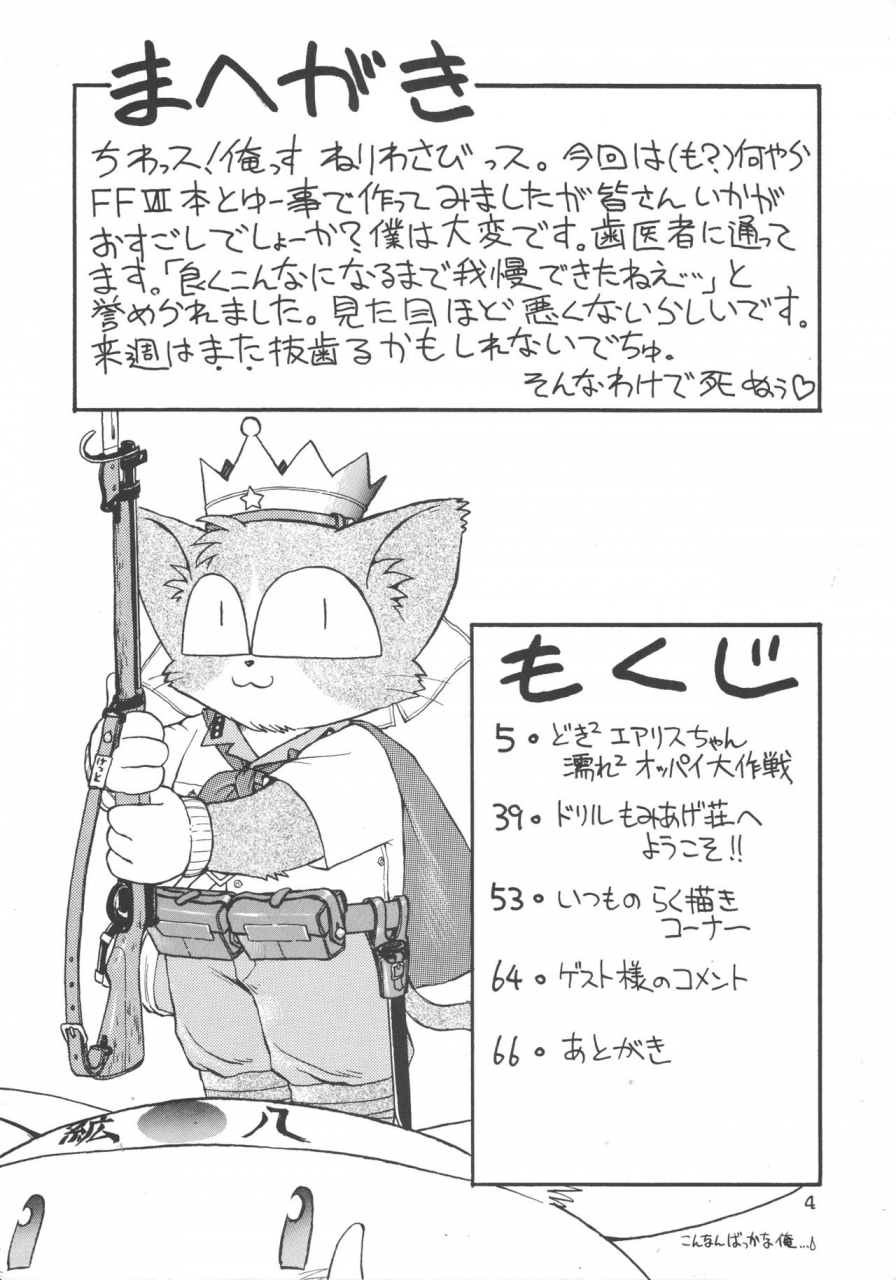 まへがき
ちわっス!俺っす ねりわさびっス。今回は(も?)何やら
FFⅦ本とゆー事で作ってみましたが皆さんいかが
おすごしでしょーか?僕は大変です。歯医者に通って
ます。「良くこんなになるまで我慢できたねえ…」と
誉められました。見た目ほど悪くないらしいです。
来週はまた抜歯るかもしれないでちゅ。
そんなわけで死ぬぅ♡
けっと
もくじ
5・どき² エアリスちゃん
濡れ² オッパイ大作戦
39・ドリルもみあげ荘へ
ようこそ!!
53・いつものらく描き
コーナー
64・ゲスト様のコメント
66・あとがき
八 紘
4
こんなんばっかな俺…♪